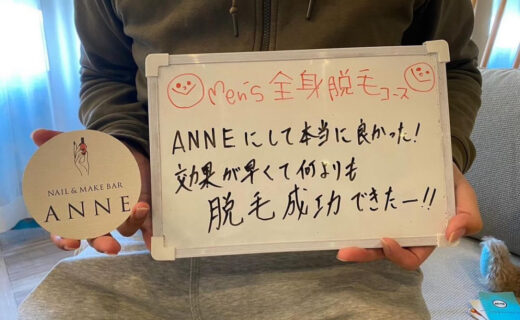 Men's 全身脱毛コース
ANNEにして本当に良かった!
効果が早くて何よりも
脱毛成功できたー!!
NAIL & MAKE BAR
ANNE